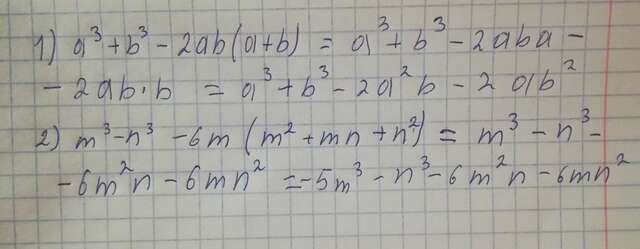 1) a³+b³-2ab(a+b) = a³+b³-2aba-
-2ab·b = a³+b³-2a²b-2ab²
2) m³-n³-6m(m²+mn+n²) = m³-n³-
-6m²n-6mn² =-5m³-n³-6m²n-6mn²